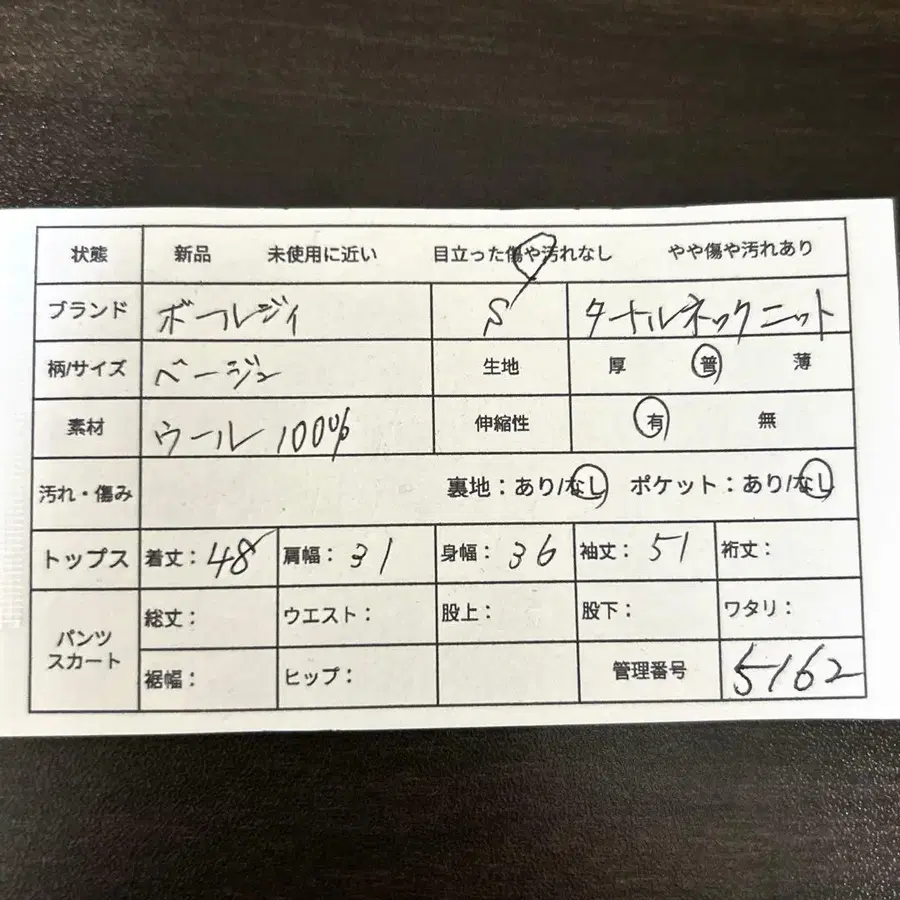 状態 新品 未使用に近い 目立った傷や汚れなし やや傷や汚れあり
ブランド ボールジィ S タートルネックニット
柄/サイズ ベージュ 生地 厚 普 薄
素材 ウール 100% 伸縮性 有 無
汚れ・傷み 裏地：あり/なし ポケット：あり/なし
トップス 着丈：48 肩幅：31 身幅：36 袖丈：51 裄丈：
パンツ スカート 総丈： ウエスト： 股上： 股下： ワタリ：
裾幅： ヒップ： 管理番号 5162